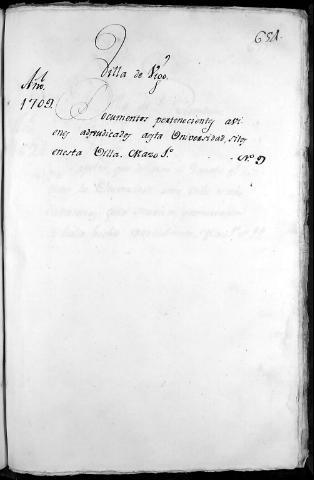 681.
Villa de Vigo.
Año.
1709.
Documentos pertenecientes a vi
enes adjudicados a esta Universidad, sitos
en esta Villa. Mazo 1.º
N.º 9